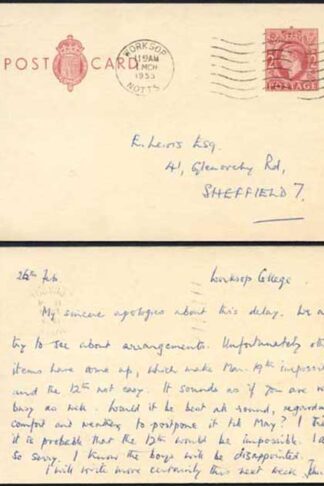 POST CARD
WORKSOP
11 15 AM
1 MCH
1953
NOTTS
POSTAGE
E. Lewis Esq.
41, Glenorchy Rd,
SHEFFIELD 7.
26th Feb. Worksop College.
My sincere apologies about this delay. We
try to see about arrangements. Unfortunately
items have come up, which make Mar. 19th
and the 12th not easy. It sounds as if you are
busy as well. Would it be best all round,
comfort and weather, to postpone it till May? I
it is probable that the 12th would be impossible. I
so sorry. I know the boys will be disappointed.
I will write more certainly this next week.